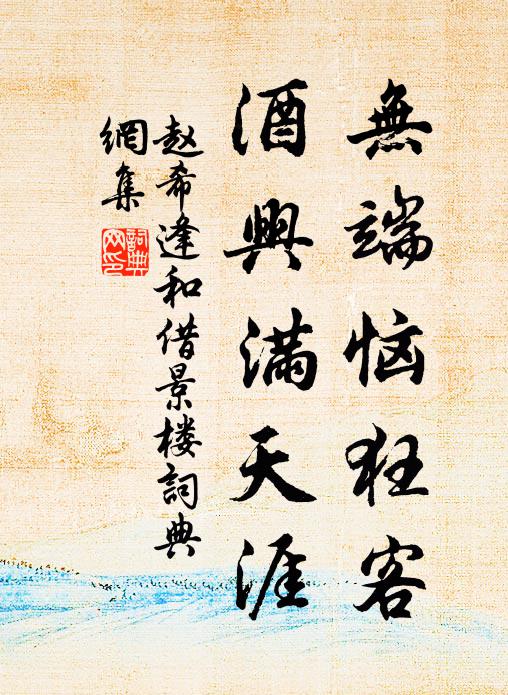 無端恼狂客
酒興滿天涯
赵希逢和借景楼詞典
網集
詞典
网印